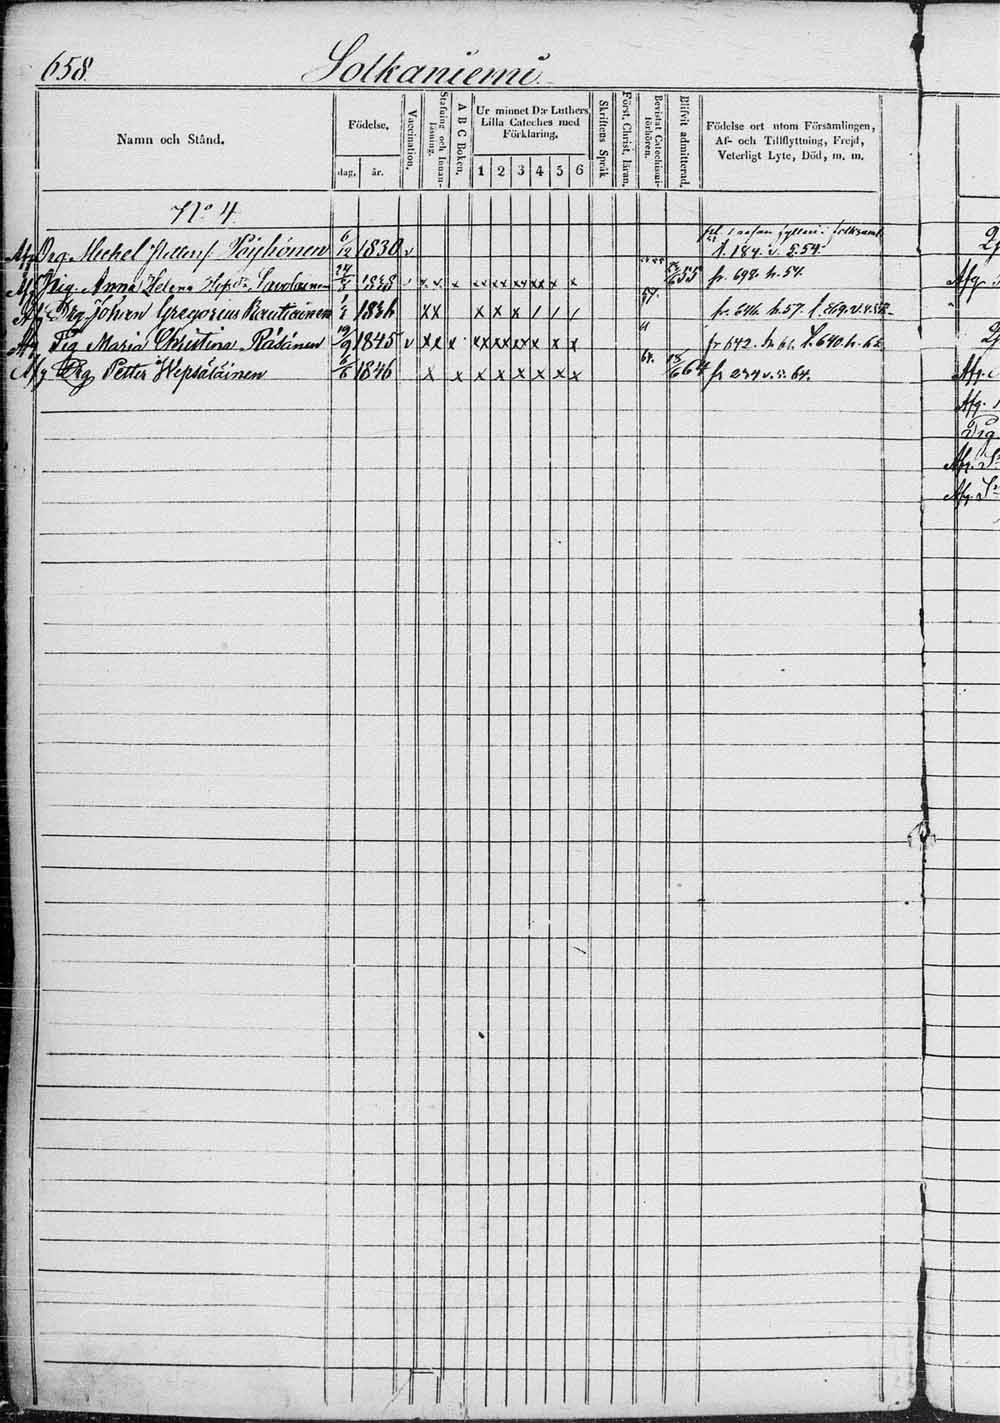 658. Solkaniemi.
Namn och Stånd.
Födelse,
dag. år.
Vaccination.
Stafning och Innanläsning.
A B C Boken.
Ur minnet D:r Luthers Lilla Cateches med Förklaring.
1 2 3 4 5 6
Skriftens Språk
Först. Christ. läran.
Bevistat Catechismiförhören.
Blifvit admitterad.
Födelse ort utom Församlingen,
Af- och Tillflyttning, Frejd,
Veterligt Lyte, Död, m. m.
No 4
Afg Drg Michel 6/12 1830 v t. 184. v. 5.54.
Afg Pig. Anna Helena Savolainen 24/8 1838 v x x x xx xx xx xx x x 55 fr. 698. h. 54.
Afg Drg Johan Gregorius Rautiainen 1836 x x x x x / / / 57. fr. 646 h. 57.
Afg Pig Maria Christina Räsänen 19/9 1845 v x x x xx xx xx x x x 61 fr 642. h. 61. t. 640. h. 62
Afg Drg Petter Hepsäläinen 6/6 1846 x x x x x x x x 64. 18/6 64 fr 234 v. s. 64.
Afg.
Afg.
Drg
Afg.
Afg.